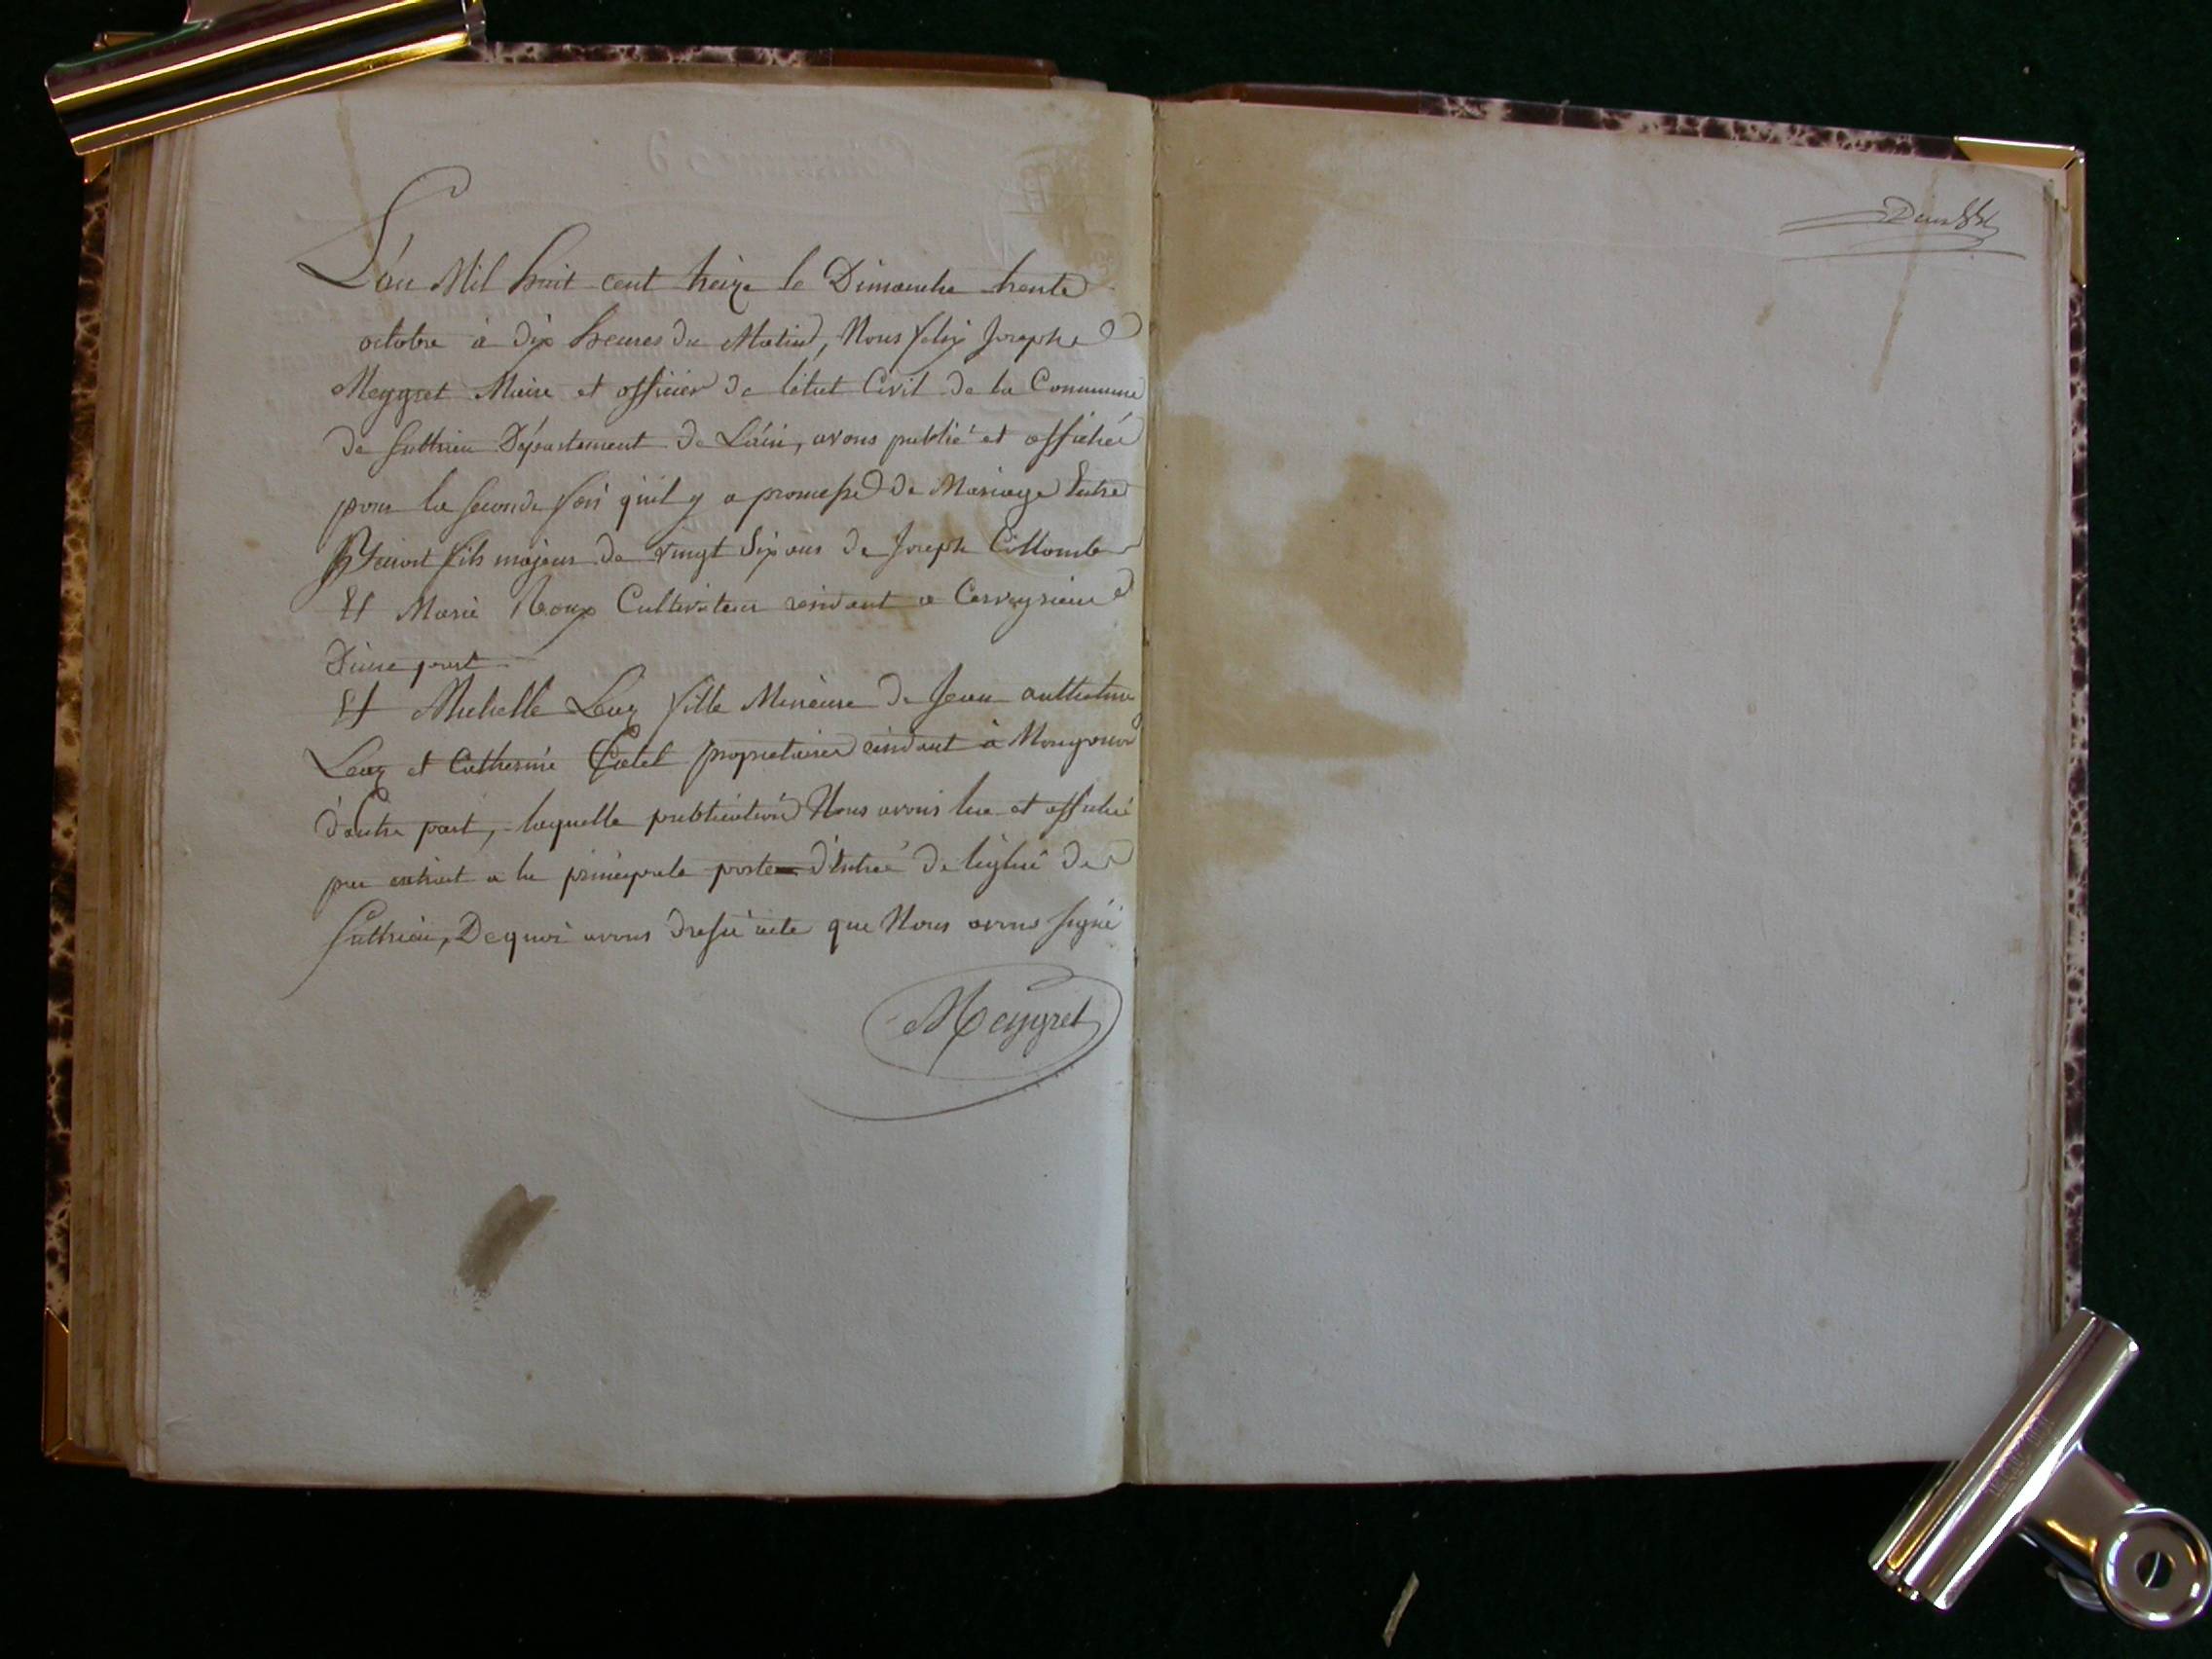 L'an Mil huit cent treize le Dimanche trente
octobre à dix heures du Matin, Nous felix Joseph
Meygret Maire et officier de l'état Civil de la Commune
de Suthrieu Département de L'ain, avons publié et affiché
pour la seconde fois qu'il y a promesse de Mariage Entre
fils majeur de vingt Six ans de Joseph Collomb
Et Marie Roux Cultivateur residant a Cerveyrieu
D'une part
Et Michelle Leuz fille Mineure de Jean
Leuz et Catherine proprietaires residant à Mongonod
d'autre part, laquelle publication Nous avons lue et affiché
par extrait a la principale porte d'Entrée de l'église de
Suthrieu, De quoi avons dressé acte que Nous avons signé
Meygret